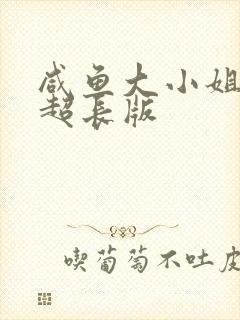 咸鱼大小姐
超长版
喫葡萄不吐皮